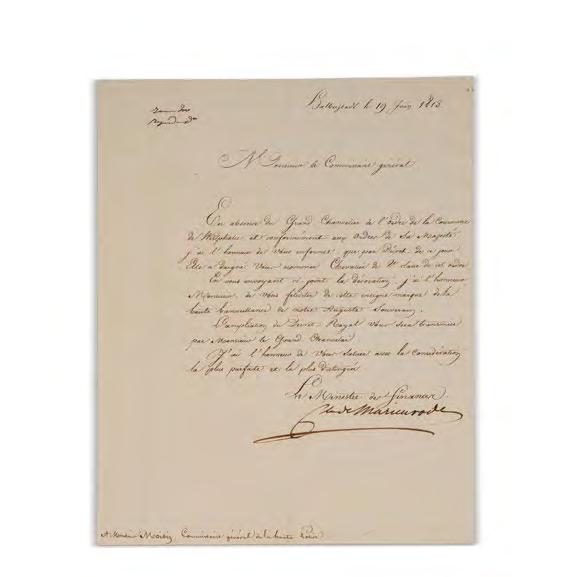 Halberstadt le 19 Juin 1813.
Monsieur le Commissaire général
En absence du Grand Chancelier de l'Ordre de la Couronne
de Westphalie et conformément aux Ordres de Sa Majesté
j'ai l'honneur de Vous informer que par Décret de ce jour
Elle a daigné Vous nommer Chevalier de 2e classe de cet ordre
En vous envoyant ci joint la décoration j'ai l'honneur
Monsieur de Vous féliciter de cette insigne marque de la
haute bienveillance de notre Auguste Souverain.
L'ampliation du Decret Royal Vous sera transmise
par Monsieur le Grand Chancelier
J'ai l'honneur de Vous saluer avec la Considération
la plus parfaite et la plus distinguée
Le Ministre des Finances.
de Malchus Marienrode
A Monsieur Commissaire général de la haute Police